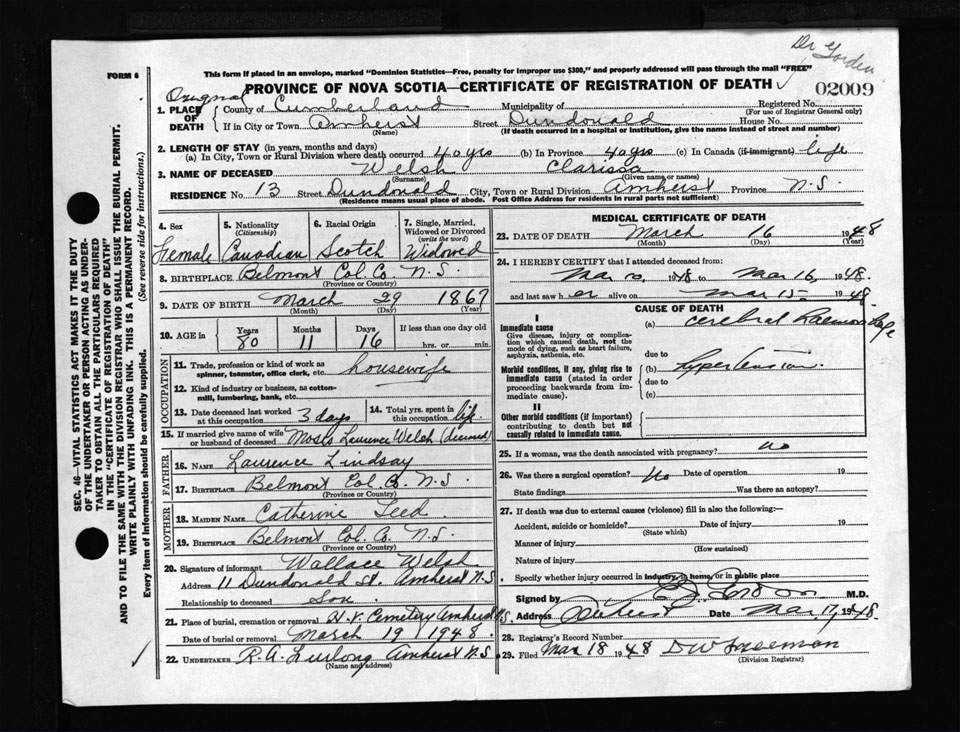 Dr Gordon
FORM 6
This form if placed in an envelope, marked "Dominion Statistics—Free, penalty for improper use $300," and properly addressed will pass through the mail "FREE"
PROVINCE OF NOVA SCOTIA—CERTIFICATE OF REGISTRATION OF DEATH ✓ 02009
Original
1. PLACE OF DEATH { County of Cumberland Municipality of Registered No.
(For use of Registrar General only)
If in City or Town Amherst Street Dundonald House No.
(Name) (If death occurred in a hospital or institution, give the name instead of street and number)
2. LENGTH OF STAY (in years, months and days)
(a) In City, Town or Rural Division where death occurred 40 yrs (b) In Province 40 yrs (c) In Canada (if immigrant) life
3. NAME OF DECEASED Welsh Clarissa
(Surname) (Given name or names)
RESIDENCE No. 13 Street Dundonald City, Town or Rural Division Amherst Province N.S.
(Residence means usual place of abode. Post Office Address for residents in rural parts not sufficient)
4. Sex 5. Nationality (Citizenship) 6. Racial Origin 7. Single, Married, Widowed or Divorced (write the word)
Female Canadian Scotch Widowed
8. BIRTHPLACE Belmont Col. Co. N.S.
(Province or Country)
9. DATE OF BIRTH March 29 1867
(Month) (Day) (Year)
10. AGE in Years Months Days If less than one day old
80 11 16 hrs. or min.
OCCUPATION
11. Trade, profession or kind of work as spinner, teamster, office clerk, etc. housewife
12. Kind of industry or business, as cotton-mill, lumbering, bank, etc.
13. Date deceased last worked at this occupation 3 days 14. Total yrs. spent in this occupation life
15. If married give name of wife or husband of deceased Moses Laurence Welch (deceased)
FATHER
16. NAME Laurence Lindsay
17. BIRTHPLACE Belmont Col. Co. N.S.
(Province or Country)
MOTHER
18. MAIDEN NAME Catherine Teed
19. BIRTHPLACE Belmont Col. Co. N.S.
(Province or Country)
20. Signature of informant Wallace Welsh
Address 11 Dundonald St. Amherst N.S
Relationship to deceased Son
21. Place of burial, cremation or removal H.V. Cemetery Amherst N.S.
Date of burial or removal March 19 1948
22. UNDERTAKER R.A. Amherst N.S.
(Name and address)
MEDICAL CERTIFICATE OF DEATH
23. DATE OF DEATH March 16 1948
(Month) (Day) (Year)
24. I HEREBY CERTIFY that I attended deceased from:
Mar 10, 1948 to Mar 16, 1948.
and last saw her alive on Mar 15. 1948.
CAUSE OF DEATH
I
Immediate cause (a) cerebral haemorrhage
Give disease, injury or complication which caused death, not the mode of dying, such as heart failure, asphyxia, asthenia, etc.
due to
Morbid conditions, if any, giving rise to immediate cause (stated in order proceeding backwards from immediate cause). (b) hypertension.
due to
(c)
II
Other morbid conditions (if important) contributing to death but not causally related to immediate cause.
25. If a woman, was the death associated with pregnancy? no
26. Was there a surgical operation? No Date of operation 19
State findings Was there an autopsy?
27. If death was due to external causes (violence) fill in also the following:—
Accident, suicide or homicide? Date of injury 19
(State which)
Manner of injury
(How sustained)
Nature of injury
Specify whether injury occurred in industry, in home, or in public place
Signed by Gordon M.D.
Address Amherst Date Mar 17, 1948
28. Registrar's Record Number
29. Filed Mar 18 1948 DW Freeman
(Division Registrar)
SEC. 46—VITAL STATISTICS ACT MAKES IT THE DUTY
OF THE UNDERTAKER OR PERSON ACTING AS UNDER-
TAKER TO OBTAIN ALL THE PARTICULARS REQUIRED
IN THE "CERTIFICATE OF REGISTRATION OF DEATH"
AND TO FILE THE SAME WITH THE DIVISION REGISTRAR WHO SHALL ISSUE THE BURIAL PERMIT.
WRITE PLAINLY WITH UNFADING INK. THIS IS A PERMANENT RECORD.
Every item of Information should be carefully supplied. (See reverse side for instructions.)